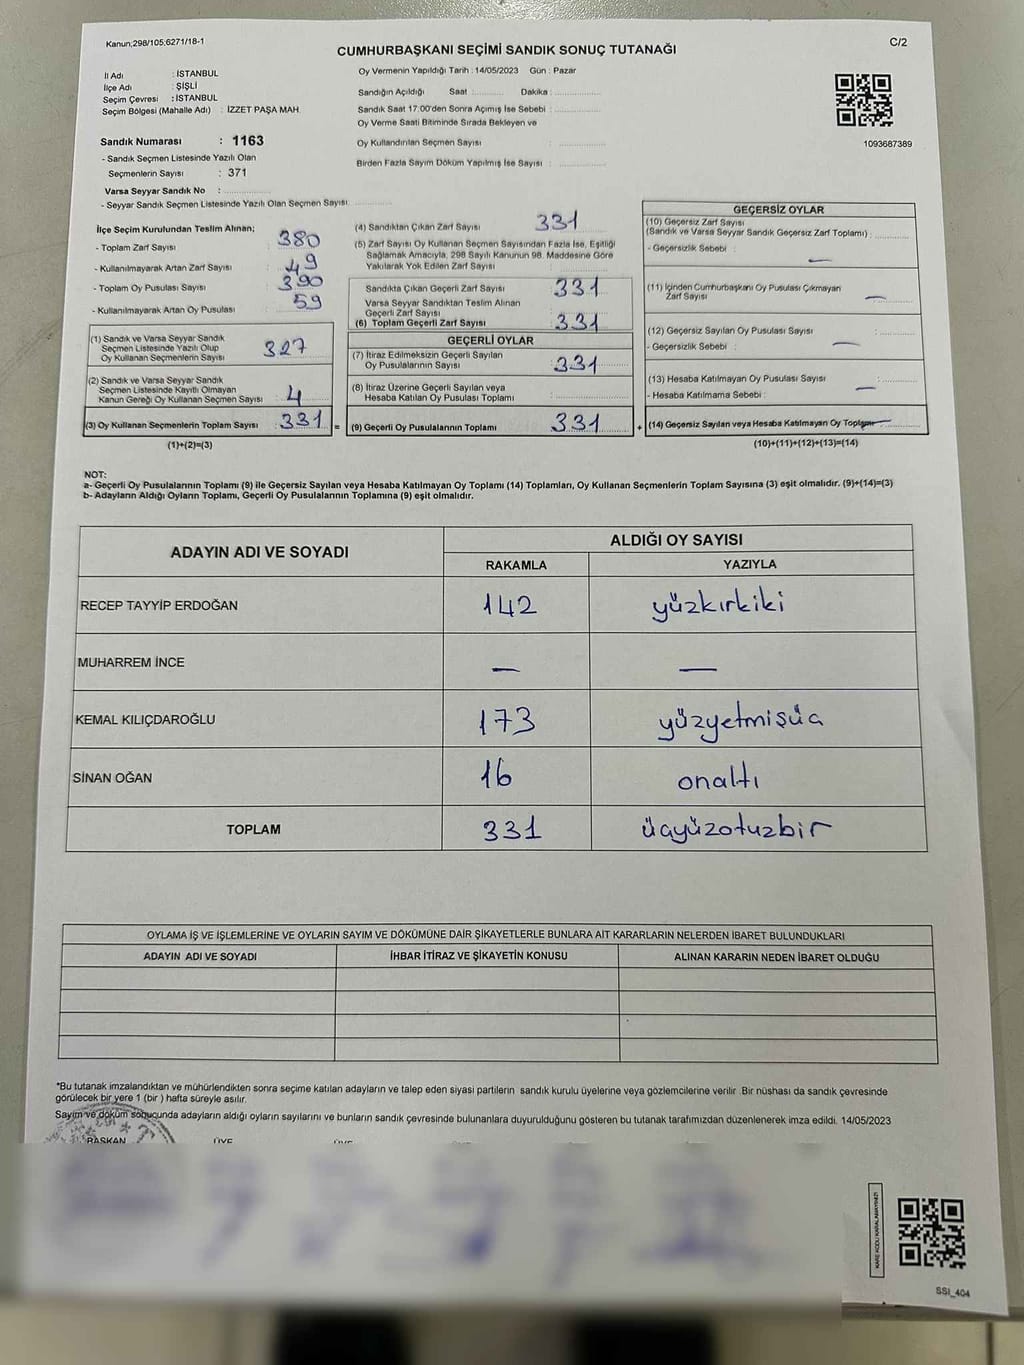 Kanun;298/105;6271/18-1
C/2
CUMHURBAŞKANI SEÇİMİ SANDIK SONUÇ TUTANAĞI
İl Adı : İSTANBUL
İlçe Adı : ŞİŞLİ
Seçim Çevresi : İSTANBUL
Seçim Bölgesi (Mahalle Adı) : İZZET PAŞA MAH.
Sandık Numarası : 1163
- Sandık Seçmen Listesinde Yazılı Olan
Seçmenlerin Sayısı : 371
Varsa Seyyar Sandık No :
- Seyyar Sandık Seçmen Listesinde Yazılı Olan Seçmen Sayısı:
Oy Vermenin Yapıldığı Tarih : 14/05/2023 Gün : Pazar
Sandığın Açıldığı Saat : Dakika :
Sandık Saat 17:00'den Sonra Açımış İse Sebebi :
Oy Verme Saati Bitiminde Sırada Bekleyen ve
Oy Kullandırılan Seçmen Sayısı :
Birden Fazla Sayım Döküm Yapılmış İse Sayısı :
1093687389
İlçe Seçim Kurulundan Teslim Alınan;
- Toplam Zarf Sayısı : 380
- Kullanılmayarak Artan Zarf Sayısı : 49
- Toplam Oy Pusulası Sayısı : 390
- Kullanılmayarak Artan Oy Pusulası : 59
(1) Sandık ve Varsa Seyyar Sandık
Seçmen Listesinde Yazılı Olup
Oy Kullanan Seçmenlerin Sayısı : 327
(2) Sandık ve Varsa Seyyar Sandık
Seçmen Listesinde Kayıtlı Olmayan
Kanun Gereği Oy Kullanan Seçmen Sayısı : 4
(3) Oy Kullanan Seçmenlerin Toplam Sayısı : 331 =
(1)+(2)=(3)
(4) Sandıktan Çıkan Zarf Sayısı : 331
(5) Zarf Sayısı Oy Kullanan Seçmen Sayısından Fazla İse, Eşitliği
Sağlamak Amacıyla, 298 Sayılı Kanunun 98. Maddesine Göre
Yakılarak Yok Edilen Zarf Sayısı :
Sandıkta Çıkan Geçerli Zarf Sayısı : 331
Varsa Seyyar Sandıktan Teslim Alınan
Geçerli Zarf Sayısı :
(6) Toplam Geçerli Zarf Sayısı : 331
GEÇERLİ OYLAR
(7) İtiraz Edilmeksizin Geçerli Sayılan
Oy Pusulalarının Sayısı : 331
(8) İtiraz Üzerine Geçerli Sayılan veya
Hesaba Katılan Oy Pusulası Toplamı :
(9) Geçerli Oy Pusulalarının Toplamı : 331 +
GEÇERSİZ OYLAR
(10) Geçersiz Zarf Sayısı
(Sandık ve Varsa Seyyar Sandık Geçersiz Zarf Toplamı) :
- Geçersizlik Sebebi : —
(11) İçinden Cumhurbaşkanı Oy Pusulası Çıkmayan
Zarf Sayısı : —
(12) Geçersiz Sayılan Oy Pusulası Sayısı :
- Geçersizlik Sebebi : —
(13) Hesaba Katılmayan Oy Pusulası Sayısı :
- Hesaba Katılmama Sebebi : —
(14) Geçersiz Sayılan veya Hesaba Katılmayan Oy Toplamı —
(10)+(11)+(12)+(13)=(14)
NOT:
a- Geçerli Oy Pusulalarının Toplamı (9) ile Geçersiz Sayılan veya Hesaba Katılmayan Oy Toplamı (14) Toplamları, Oy Kullanan Seçmenlerin Toplam Sayısına (3) eşit olmalıdır. (9)+(14)=(3)
b- Adayların Aldığı Oyların Toplamı, Geçerli Oy Pusulalarının Toplamına (9) eşit olmalıdır.
ADAYIN ADI VE SOYADI
ALDIĞI OY SAYISI
RAKAMLA YAZIYLA
RECEP TAYYİP ERDOĞAN 142 yüzkırkiki
MUHARREM İNCE — —
KEMAL KILIÇDAROĞLU 173 yüzyetmişüç
SİNAN OĞAN 16 onaltı
TOPLAM 331 üçyüzotuzbir
OYLAMA İŞ VE İŞLEMLERİNE VE OYLARIN SAYIM VE DÖKÜMÜNE DAİR ŞİKAYETLERLE BUNLARA AİT KARARLARIN NELERDEN İBARET BULUNDUKLARI
ADAYIN ADI VE SOYADI İHBAR İTİRAZ VE ŞİKAYETİN KONUSU ALINAN KARARIN NEDEN İBARET OLDUĞU
*Bu tutanak imzalandıktan ve mühürlendikten sonra seçime katılan adayların ve talep eden siyasi partilerin sandık kurulu üyelerine veya gözlemcilerine verilir. Bir nüshası da sandık çevresinde
görülecek bir yere 1 (bir ) hafta süreyle asılır.
Sayım ve döküm sonucunda adayların aldığı oyların sayılarını ve bunların sandık çevresinde bulunanlara duyurulduğunu gösteren bu tutanak tarafımızdan düzenlenerek imza edildi. 14/05/2023
BAŞKAN ÜYE
KARE KODU KARALAMAYINIZ!
SSİ_404